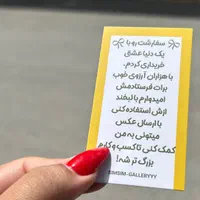 سفارشت رو با
یک دنیا عشق
خریداری کردم.
با هزاران آرزوی خوب
برات فرستادمش
امیدوارم با لبخند
ازش استفاده کنی
با ارسال عکس
میتونی به من
کمک کنی تا کسب و کارم
بزرگ تر شه!
SIMSIM-GALLERYYY